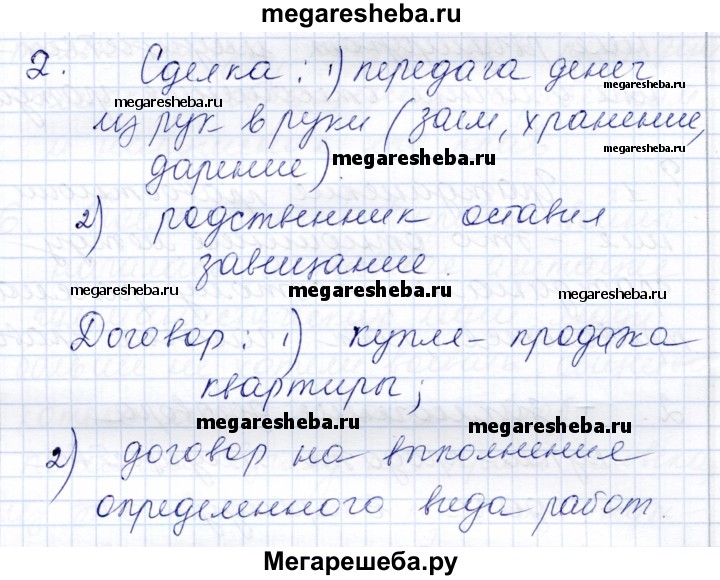 megaresheba.ru
2. Сделка: 1) передача денег
megaresheba.ru
из рук в руки (заем, хранение,
megaresheba.ru
megaresheba.ru
дарение).
2) родственник оставил
завещание.
megaresheba.ru
megaresheba.ru
megaresheba.ru
Договор: 1) купля-продажа
квартиры;
megaresheba.ru
megaresheba.ru
2) договор на выполнение
определенного вида работ.
Мегарешеба.ру